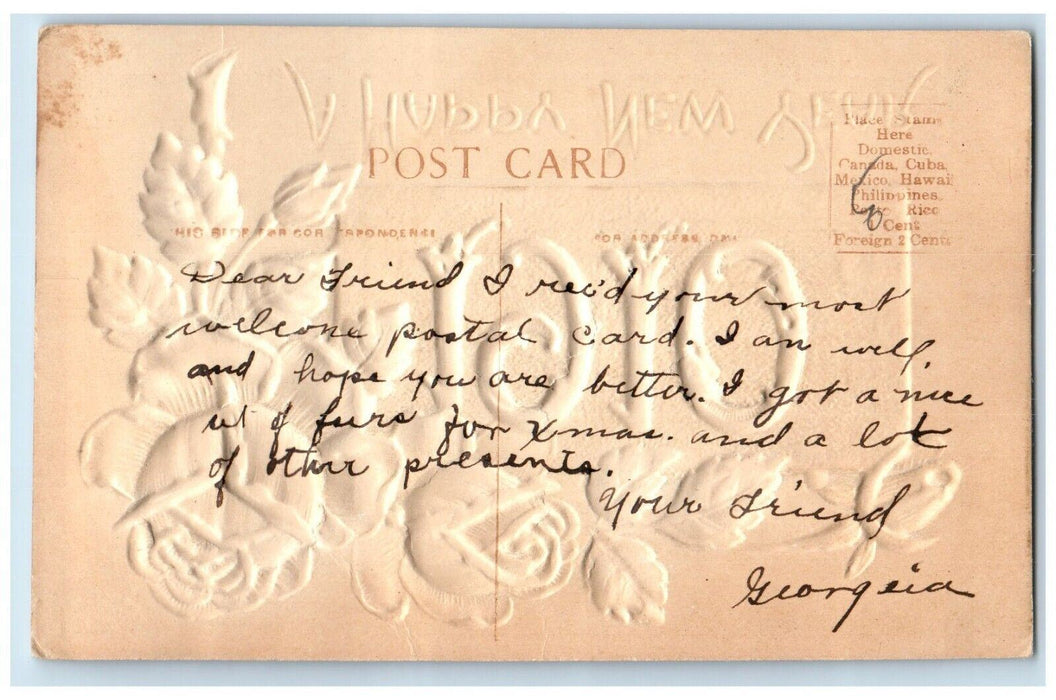 A HAPPY NEW YEAR
POST CARD
Place Stamp
Here
Domestic,
Canada, Cuba,
Mexico, Hawaii
Philippines,
Porto Rico
Cent
Foreign 2 Cents
THIS SIDE FOR CORRESPONDENCE
FOR ADDRESS ONLY
1910
Dear Friend I rec'd your most
welcome postal card. I am well
and hope you are better. I got a nice
set of furs for Xmas. and a lot
of other presents.
Your Friend
Georgeia